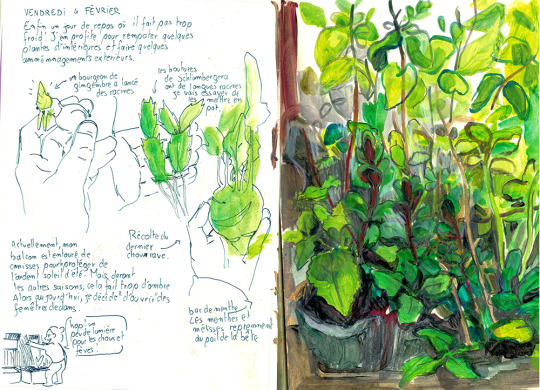 VENDREDI 4 FÉVRIER
Enfin un jour de repos où il fait pas trop
froid! J'en profite pour rempoter quelques
plantes d'intérieures et faire quelques
amménagements exterieurs.
un bourgeon de
gingembre a lancé
des racines
les boutures
de Schlumbergera
ont de longues racines
je vais essayer de
les mettre en
pot.
Récolte du
dernier
chou rave.
Actuellement, mon
balcon est entouré de
canisses pour protéger de
l'ardent soleil d'été. Mais durant
les autres saisons, cela fait trop d'ombre
Alors aujourd'hui, je décide d'ouvrir des
fenêtres dedans.
hop! un
peu de lumière
pour les choux et
fèves.
bac de menthe
Les menthes et
mélisses reprennent
du poil de la bête